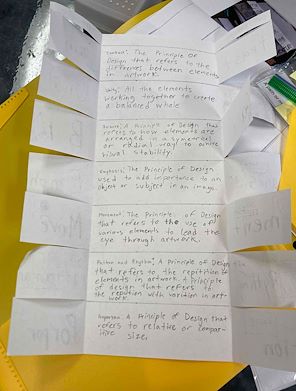 Contrast: The Principle of
Design that refers to the
differences between elements
in artwork.
Unity: All the elements
working together to create
a balanced whale
Balance: A Principle of Design that
refers to how elements are
arranged in a symmetrical
or radial way to
visual stability.
Emphasis: The Principle of Design
used to add importance to an
object or subject in an image.
Movement: The Principle of Design
that refers to the use of
various elements to lead the
eye through artwork.
Pattern and Rhythm: A Principle of Design
that refers to the repitition of
elements in artwork. A principle
of design that refers to
the repition with variation in art-
work.
Proportion: A Principle of Design That
refers to relative or compar-
itive size.